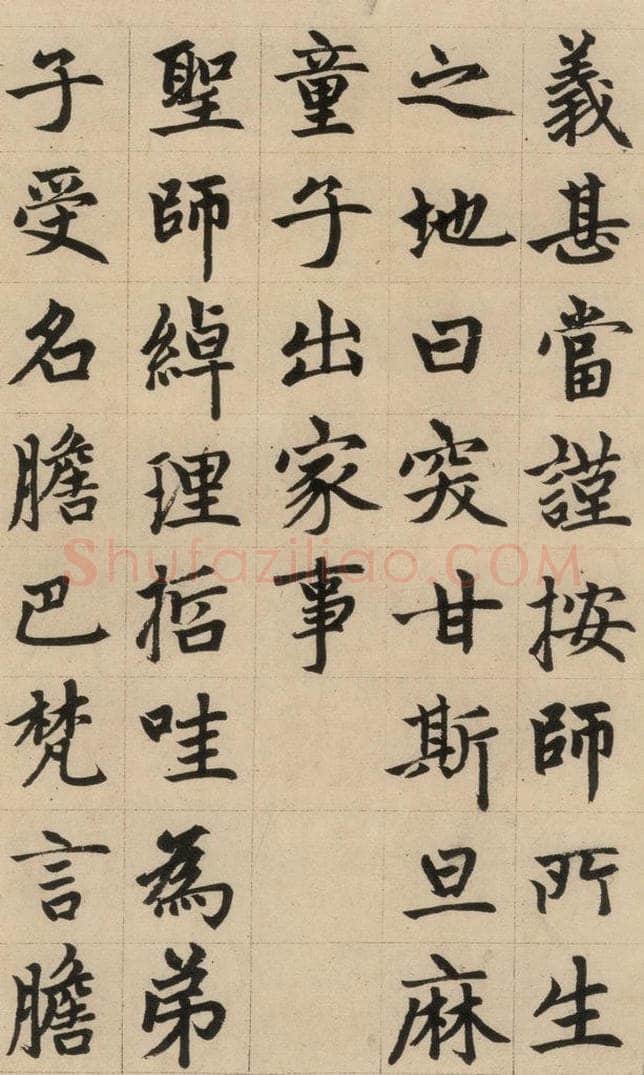 義甚當謹按師所生
之地曰突甘斯旦麻
童子出家事
聖師綽理哲哇為弟
子受名膽巴梵言膽
Shufaziliao.COM